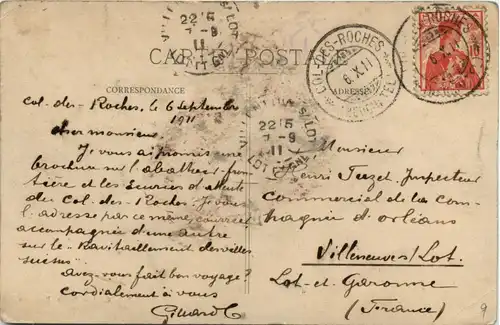 CARTE POSTALE
CORRESPONDANCE
ADRESSE
COL-DES-ROCHES
6.X.11
22 15
7-9
11
22 15
7-9
11
Col-des-Roches, le 6 Septembre
1911
Cher monsieur.
Je vous ai promis une
brochure sur l'abattoir fron-
tière et les Ecuries d'attente
du Col-des-Roches. Je vous
l'adresse par ce même courrier
accompagnée d'une autre
sur le Ravitaillement des villes
suisses
avez-vous fait bon voyage?
Cordialement à vous
Monsieur
Henri Tuzet, Inspecteur
Commercial de la Com-
pagnie d'Orléans
Villeneuve s/Lot.
Lot-et-Garonne
(France)
9